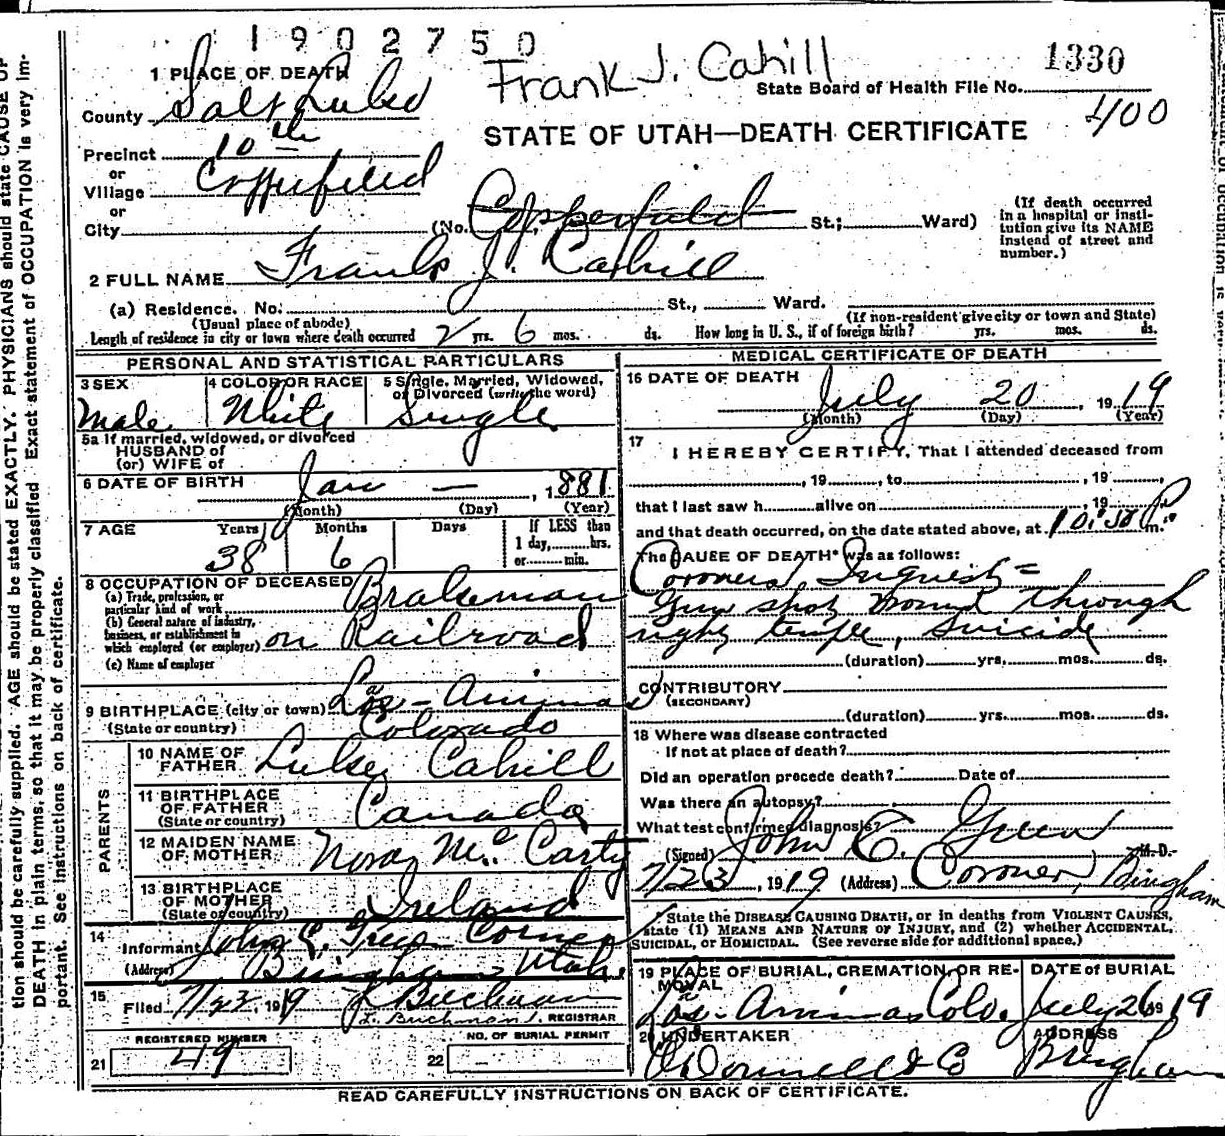 1902750
Frank J. Cahill
1330
1 PLACE OF DEATH
State Board of Health File No.
400
County Salt Lake
STATE OF UTAH—DEATH CERTIFICATE
Precinct 10th
or
Village Copperfield
or
City (No. Copperfield St.; Ward)
(If death occurred in a hospital or insti-
tution give its NAME
instead of street and
number.)
2 FULL NAME Frank J. Cahill
(a) Residence. No. St., Ward.
(Usual place of abode)
(If non-resident give city or town and State)
Length of residence in city or town where death occurred 2 yrs. 6 mos. ds. How long in U. S., if of foreign birth? yrs. mos. ds.
PERSONAL AND STATISTICAL PARTICULARS
3 SEX
Male
4 COLOR OR RACE
White
5 Single, Married, Widowed,
or Divorced (write the word)
Single
5a If married, widowed, or divorced
HUSBAND of
(or) WIFE of
6 DATE OF BIRTH Jan — , 1881
(Month) (Day) (Year)
7 AGE Years Months Days
38 6
If LESS than
1 day, hrs.
or min.
8 OCCUPATION OF DECEASED
(a) Trade, profession, or
particular kind of work Brakeman
(b) General nature of industry,
business, or establishment in
which employed (or employer) on Railroad
(c) Name of employer
9 BIRTHPLACE (city or town) Las-Animas
(State or country) Colorado
PARENTS
10 NAME OF
FATHER Luke Cahill
11 BIRTHPLACE
OF FATHER
(State or country) Canada
12 MAIDEN NAME
OF MOTHER Nora Mc Carty
13 BIRTHPLACE
OF MOTHER
(State or country) Ireland
14
Informant John C. Green Corner
(Address) Bingham Utah
15
Filed 7/23, 1919 L Buchman
L. Buchman J. REGISTRAR
REGISTERED NUMBER
21 49
NO. OF BURIAL PERMIT
22 —
MEDICAL CERTIFICATE OF DEATH
16 DATE OF DEATH
July 20, 1919
(Month) (Day) (Year)
17
I HEREBY CERTIFY, That I attended deceased from
, 19 , to , 19 ,
that I last saw h alive on , 19
and that death occurred, on the date stated above, at 10:30 P m.
The CAUSE OF DEATH* was as follows:
Coroners Inquest =
Gun shot wound through
right temple, Suicide
(duration) yrs. mos. ds.
CONTRIBUTORY
(SECONDARY)
(duration) yrs. mos. ds.
18 Where was disease contracted
If not at place of death?
Did an operation precede death? Date of
Was there an autopsy?
What test confirmed diagnosis?
(Signed) John C. Green M. D.
7/23, 1919 (Address) Coroner, Bingham
* State the DISEASE CAUSING DEATH, or in deaths from VIOLENT CAUSES,
state (1) MEANS AND NATURE OF INJURY, and (2) whether ACCIDENTAL,
SUICIDAL, or HOMICIDAL. (See reverse side for additional space.)
19 PLACE OF BURIAL, CREMATION, OR RE-
MOVAL
Las-Animas Colo.
DATE OF BURIAL
July 26 1919
20 UNDERTAKER
O'Donnell & Co
ADDRESS
Bingham
READ CAREFULLY INSTRUCTIONS ON BACK OF CERTIFICATE.
tion should be carefully supplied. AGE should be stated EXACTLY. PHYSICIANS should state CAUSE OF
DEATH in plain terms, so that it may be properly classified. Exact statement of OCCUPATION is very im-
portant. See instructions on back of certificate.